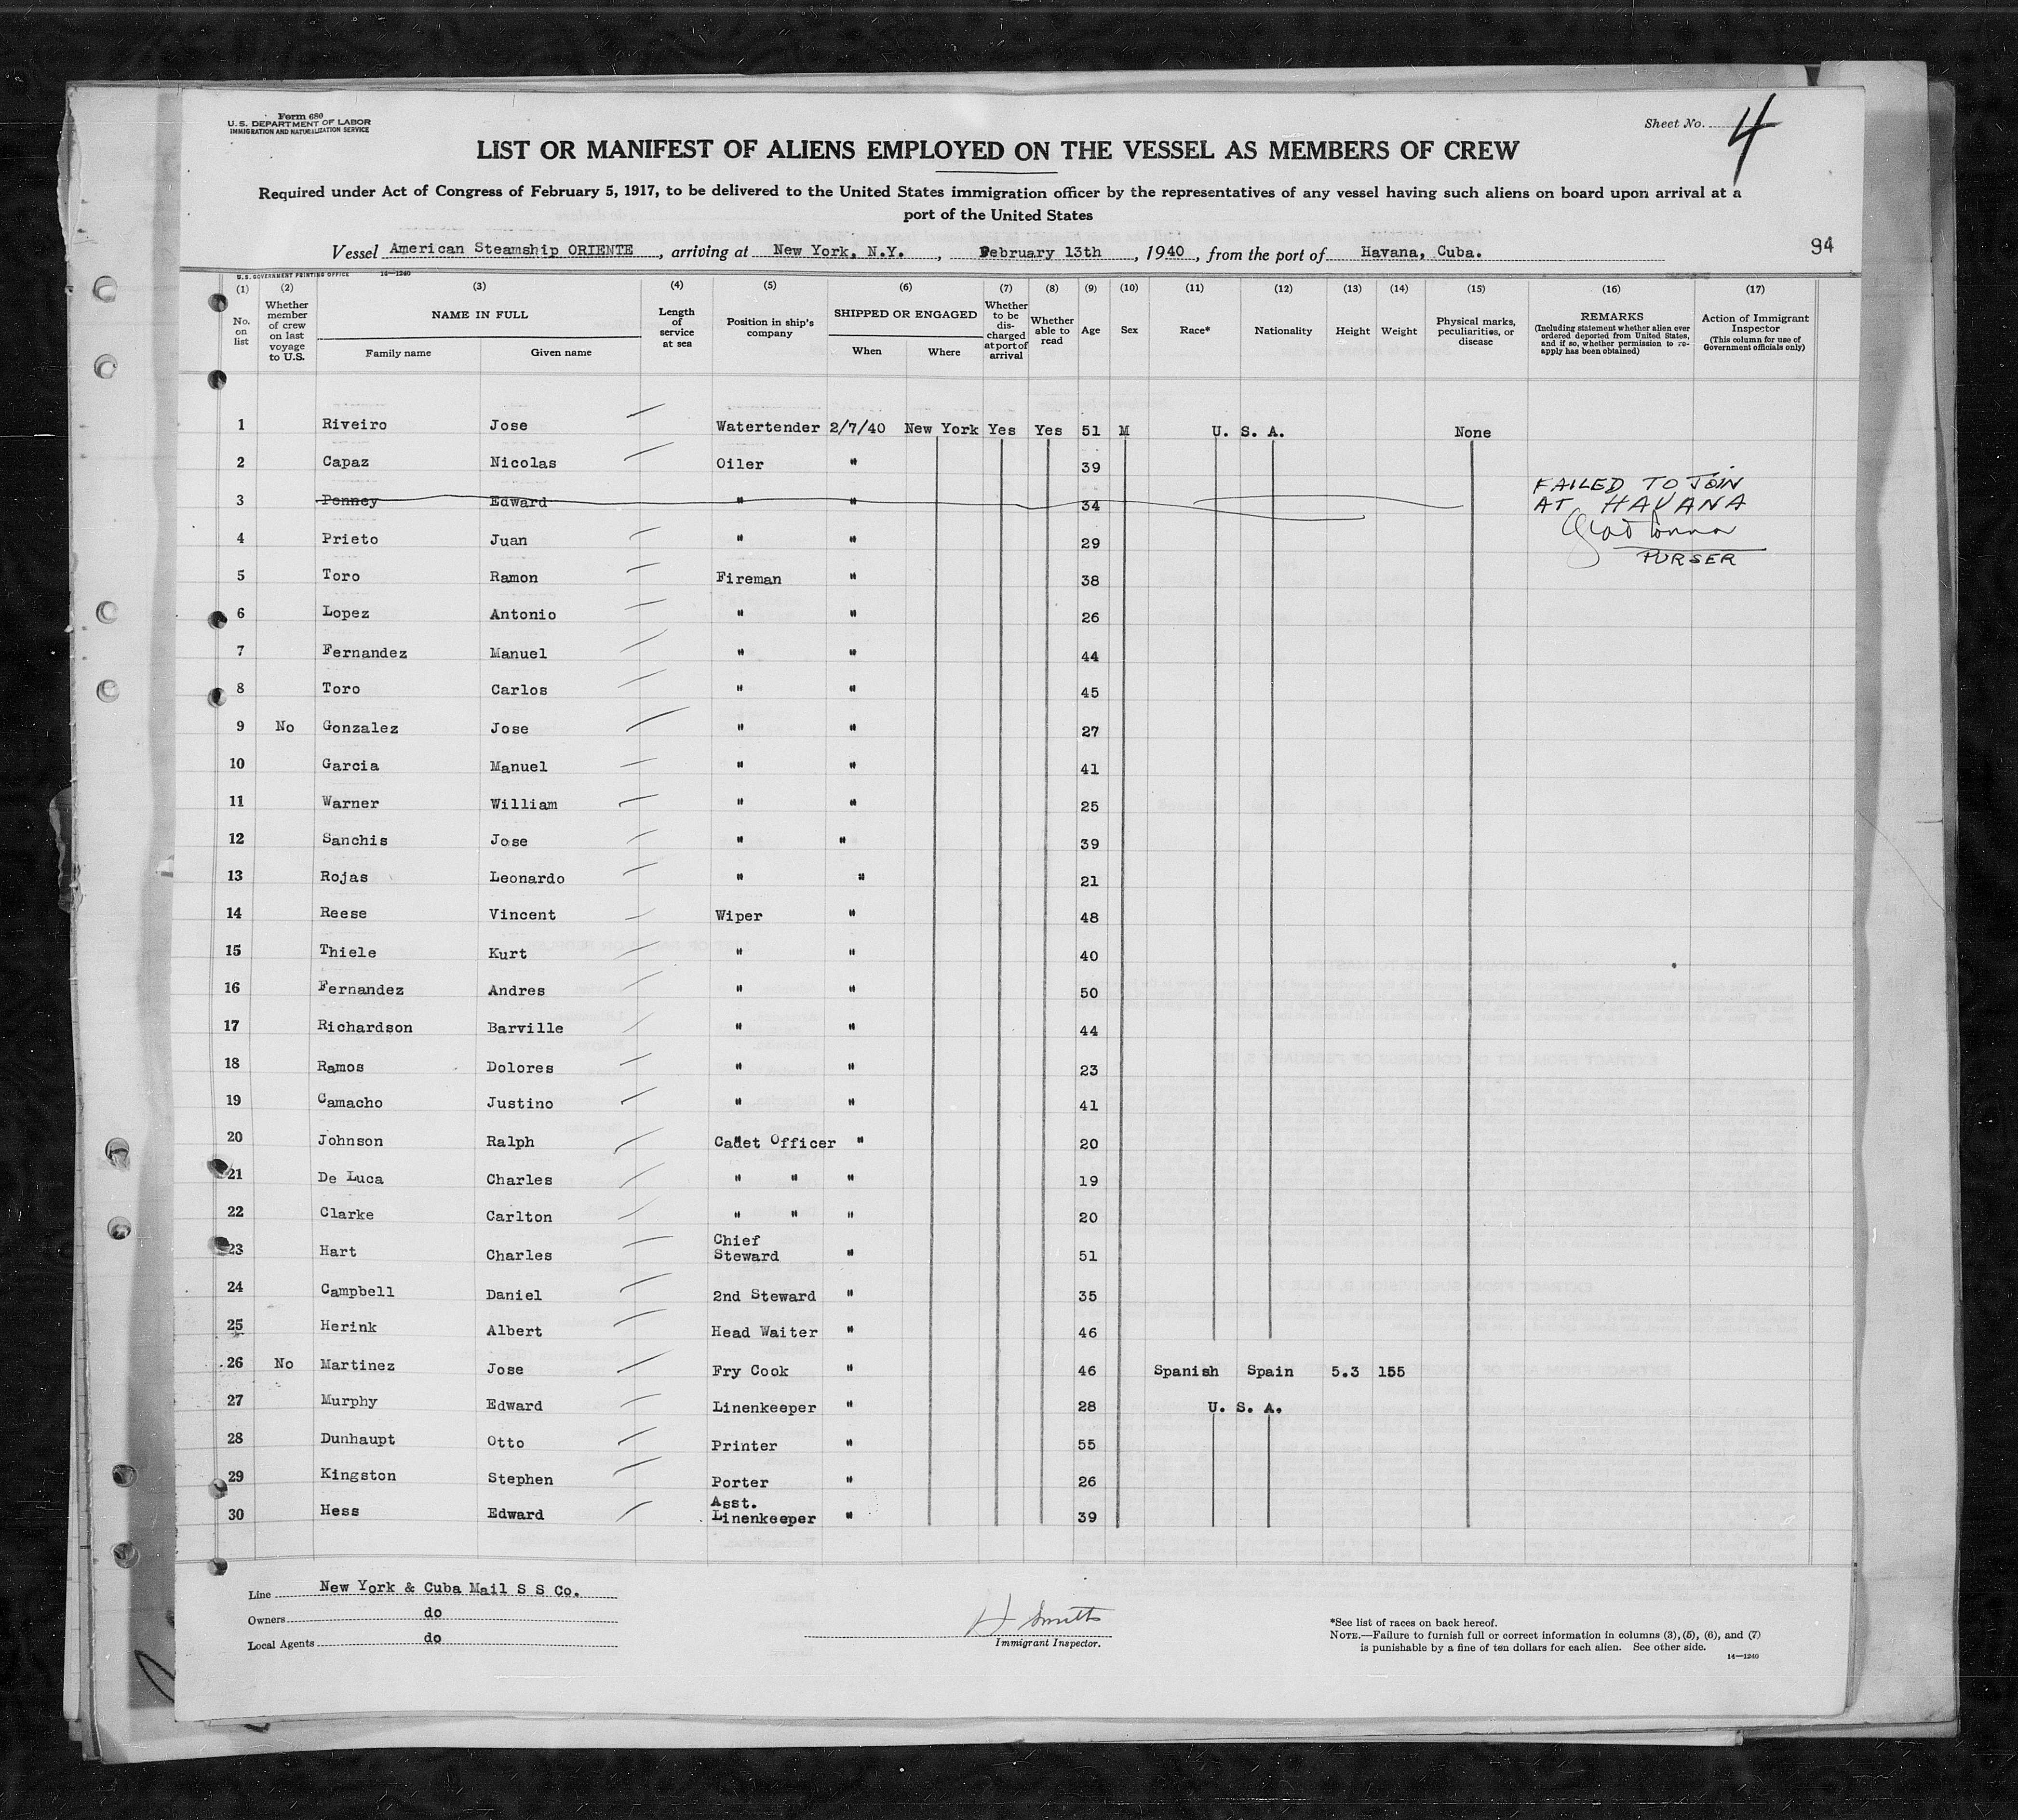 Form 680
U. S. DEPARTMENT OF LABOR
IMMIGRATION AND NATURALIZATION SERVICE
Sheet No. 4
LIST OR MANIFEST OF ALIENS EMPLOYED ON THE VESSEL AS MEMBERS OF CREW
Required under Act of Congress of February 5, 1917, to be delivered to the United States immigration officer by the representatives of any vessel having such aliens on board upon arrival at a
port of the United States
Vessel American Steamship ORIENTE, arriving at New York, N.Y., February 13th, 1940, from the port of Havana, Cuba.
94
U. S. GOVERNMENT PRINTING OFFICE 14—1240
(1) (2) (3) (4) (5) (6) (7) (8) (9) (10) (11) (12) (13) (14) (15) (16) (17)
No. on list
Whether member of crew on last voyage to U.S.
NAME IN FULL
Family name Given name
Length of service at sea
Position in ship's company
SHIPPED OR ENGAGED
When Where
Whether to be discharged at port of arrival
Whether able to read
Age
Sex
Race*
Nationality
Height
Weight
Physical marks, peculiarities, or disease
REMARKS
(Including statement whether alien ever ordered deported from United States, and if so, whether permission to re-apply has been obtained)
Action of Immigrant Inspector
(This column for use of Government officials only)
1 Riveiro Jose Watertender 2/7/40 New York Yes Yes 51 M U. S. A. None
2 Capaz Nicolas Oiler " 39
3 Penney Edward " " 34 FAILED TO JOIN
AT HAVANA
PURSER
4 Prieto Juan " " 29
5 Toro Ramon Fireman " 38
6 Lopez Antonio " " 26
7 Fernandez Manuel " " 44
8 Toro Carlos " " 45
9 No Gonzalez Jose " " 27
10 Garcia Manuel " " 41
11 Warner William " " 25
12 Sanchis Jose " " 39
13 Rojas Leonardo " " 21
14 Reese Vincent Wiper " 48
15 Thiele Kurt " " 40
16 Fernandez Andres " " 50
17 Richardson Barville " " 44
18 Ramos Dolores " " 23
19 Camacho Justino " " 41
20 Johnson Ralph Cadet Officer " 20
21 De Luca Charles " " " 19
22 Clarke Carlton " " " 20
23 Hart Charles Chief Steward " 51
24 Campbell Daniel 2nd Steward " 35
25 Herink Albert Head Waiter " 46
26 No Martinez Jose Fry Cook " 46 Spanish Spain 5.3 155
27 Murphy Edward Linenkeeper " 28 U. S. A.
28 Dunhaupt Otto Printer " 55
29 Kingston Stephen Porter " 26
30 Hess Edward Asst. Linenkeeper " 39
Line New York & Cuba Mail S S Co.
Owners do
Local Agents do
H Smith
Immigrant Inspector.
*See list of races on back hereof.
NOTE.—Failure to furnish full or correct information in columns (3), (5), (6), and (7)
is punishable by a fine of ten dollars for each alien. See other side.
14—1240